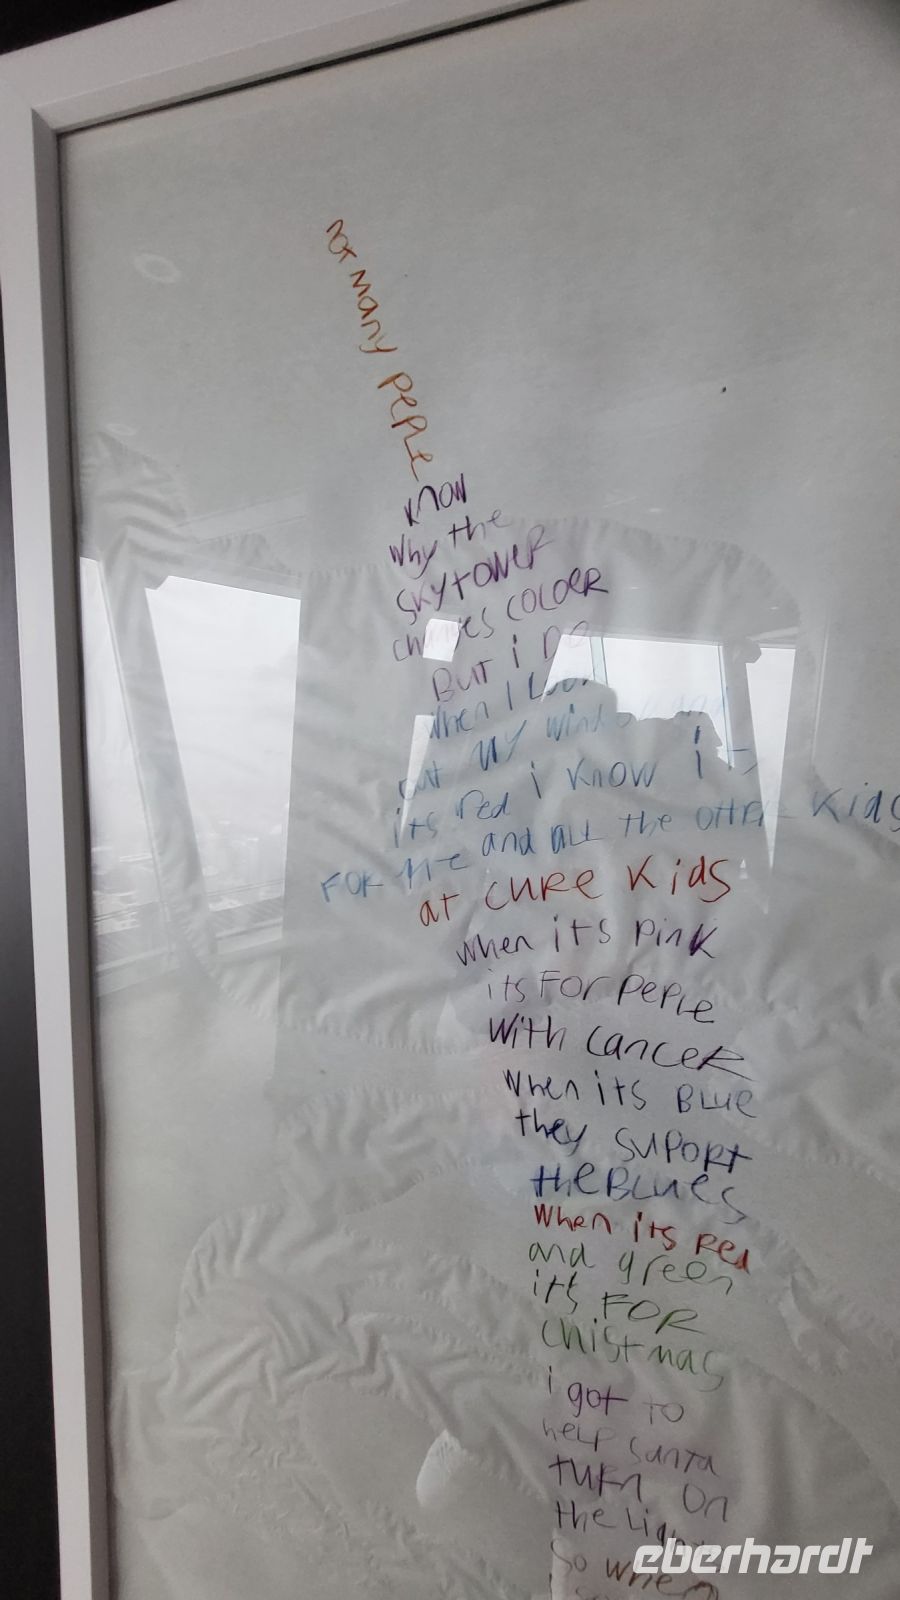 not many peple
know
why the
skytower
changes coloer
But i Do
when I Look
out my window and
its red i know its
FOR me and all the other kids
at CURE Kids
when its pink
its For peple
with cancer
when its Blue
they suport
the Blues
when its Red
and green
its FOR
chistmas
i got to
help santa
turn on
the Lights
So when
eberhardt